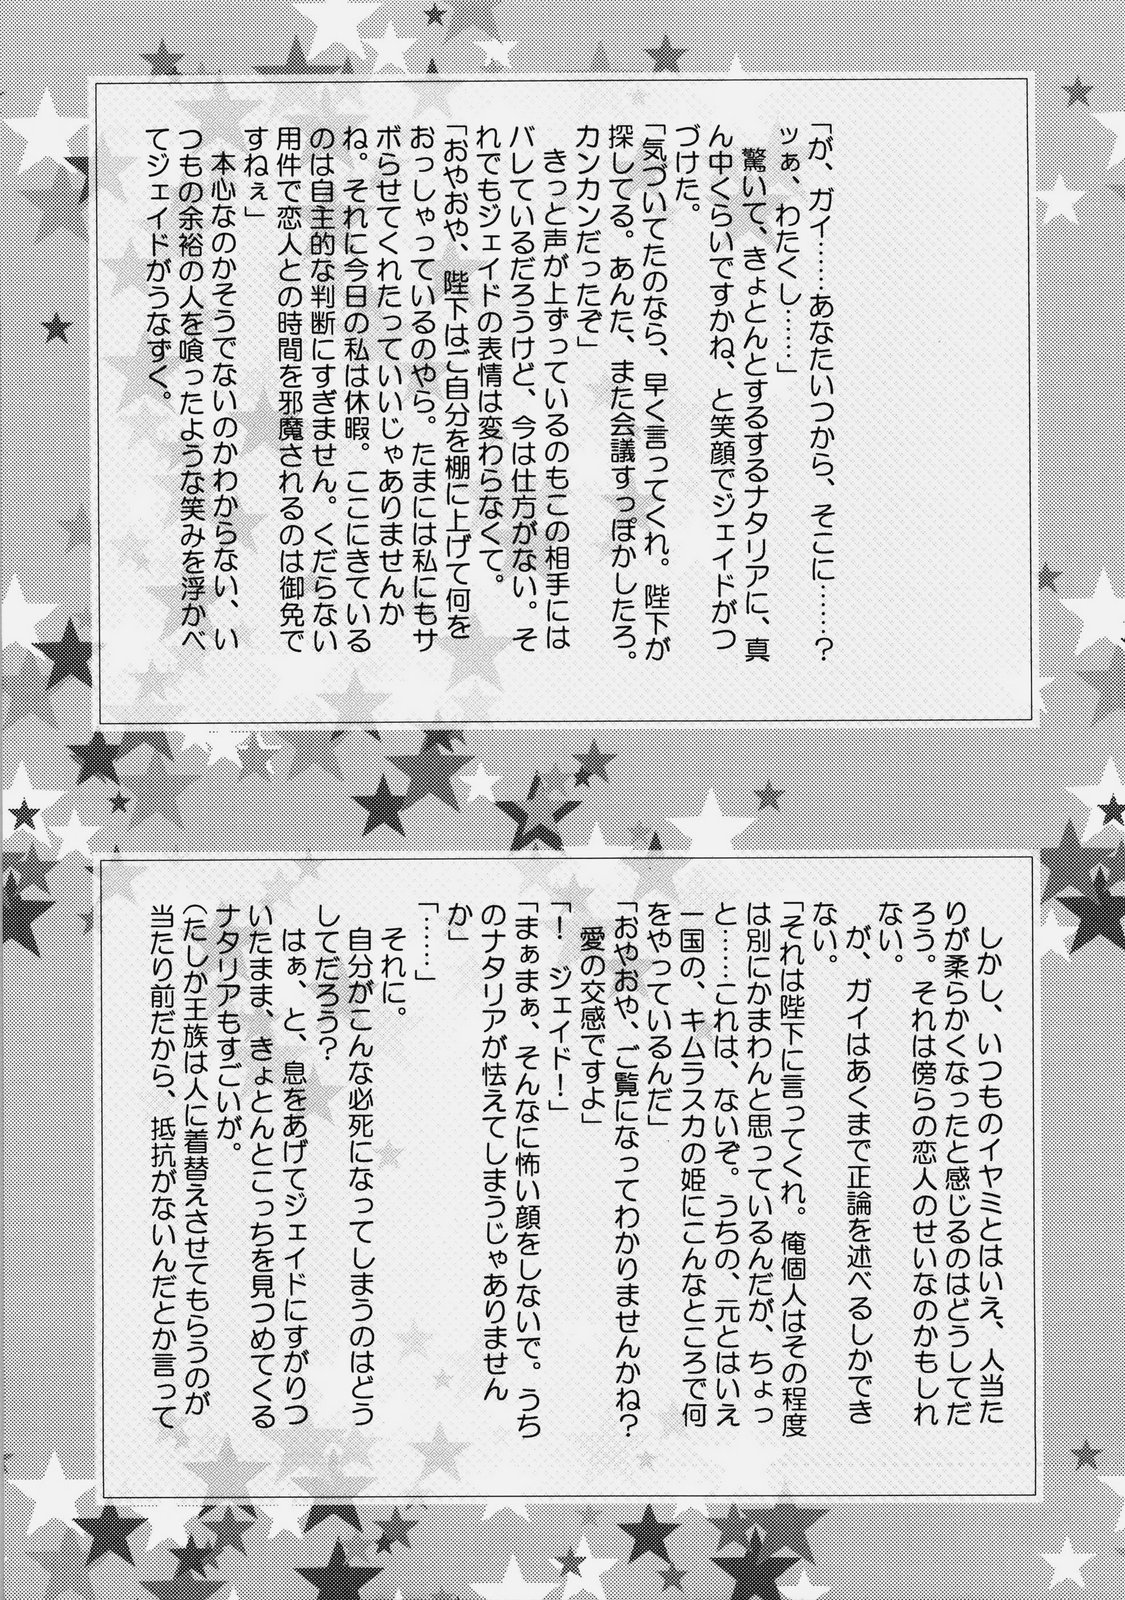 「が、ガイ……あなたいつから、そこに……？
ッぁ、わたくし……」
　驚いて、きょとんとするするナタリアに、真
ん中くらいですかね、と笑顔でジェイドがつ
づけた。
「気づいてたのなら、早く言ってくれ。陛下が
探してる。あんた、また会議すっぽかしたろ。
カンカンだったぞ」
　きっと声が上ずっているのもこの相手には
バレているだろうけど、今は仕方がない。そ
れでもジェイドの表情は変わらなくて。
「おやおや、陛下はご自分を棚に上げて何を
おっしゃっているのやら。たまには私にもサ
ボらせてくれたっていいじゃありませんか
ね。それに今日の私は休暇。ここにきている
のは自主的な判断にすぎません。くだらない
用件で恋人との時間を邪魔されるのは御免で
すねぇ」
　本心なのかそうでないのかわからない、い
つもの余裕の人を喰ったような笑みを浮かべ
てジェイドがうなずく。
　しかし、いつものイヤミとはいえ、人当た
りが柔らかくなったと感じるのはどうしてだ
ろう。それは傍らの恋人のせいなのかもしれ
ない。
　が、ガイはあくまで正論を述べるしかでき
ない。
「それは陛下に言ってくれ。俺個人はその程度
は別にかまわんと思っているんだが、ちょっ
と……これは、ないぞ。うちの、元とはいえ
一国の、キムラスカの姫にこんなところで何
をやっているんだ」
「おやおや、ご覧になってわかりませんかね？
　愛の交感ですよ」
「！　ジェイド！」
「まぁまぁ、そんなに怖い顔をしないで。うち
のナタリアが怯えてしまうじゃありません
か」
「……」
　それに。
　自分がこんな必死になってしまうのはどう
してだろう？
　はぁ、と、息をあげてジェイドにすがりつ
いたまま、きょとんとこっちを見つめてくる
ナタリアもすごいが。
（たしか王族は人に着替えさせてもらうのが
当たり前だから、抵抗がないんだとか言って